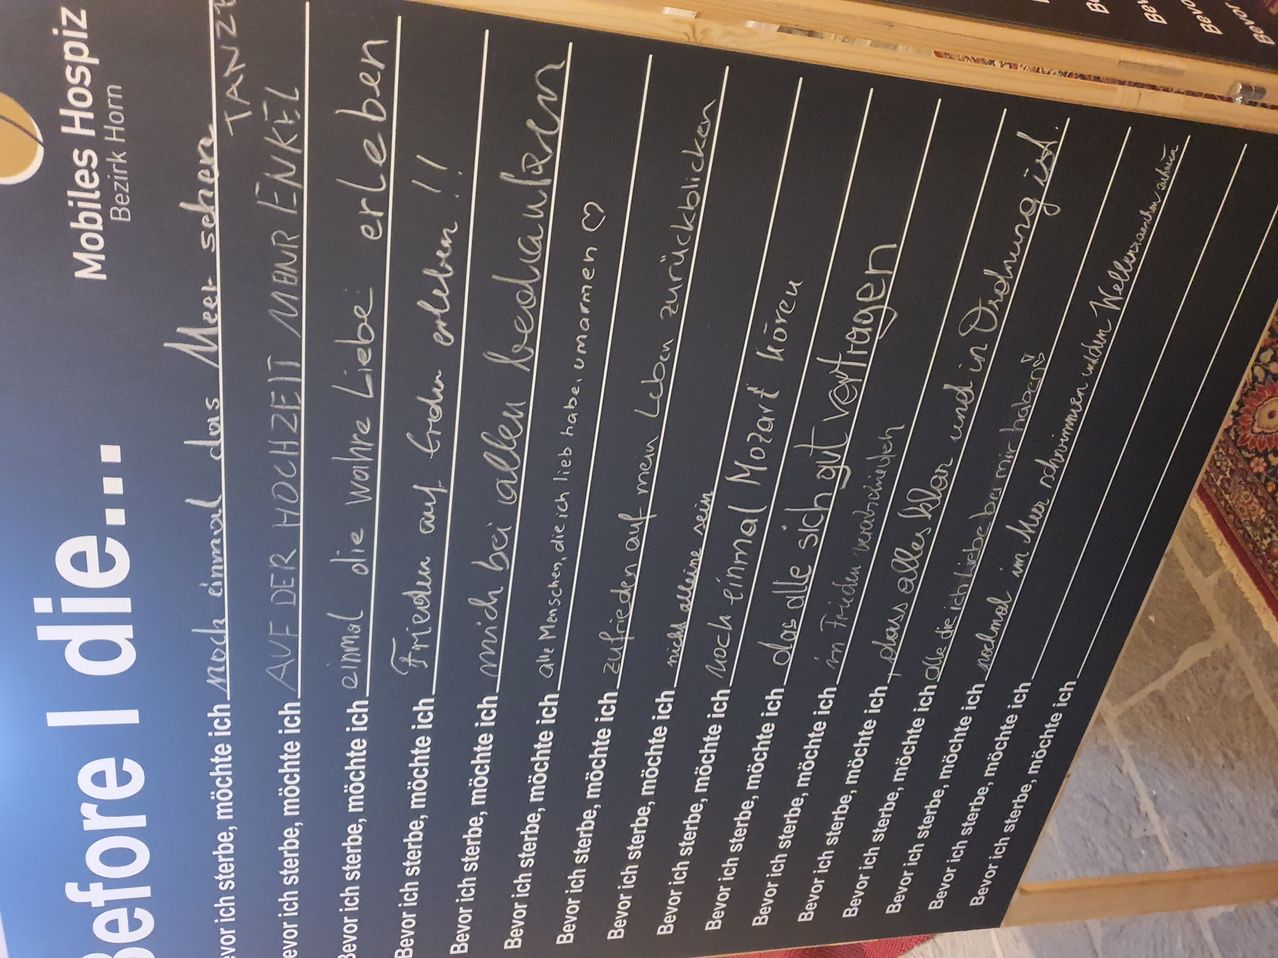 Before I die...
Mobiles Hospiz
Bezirk Horn
Bevor ich sterbe, möchte ich noch einmal das Meer sehen
TANZE
Bevor ich sterbe, möchte ich AUF DER HOCHZEIT MEINER ENKEL
Bevor ich sterbe, möchte ich einmal die wahre Liebe erleben
Bevor ich sterbe, möchte ich Frieden auf Erden erleben!!
Bevor ich sterbe, möchte ich mich bei allen bedanken
Bevor ich sterbe, möchte ich alle Menschen, die ich lieb habe, umarmen ♡
Bevor ich sterbe, möchte ich zufrieden auf mein Leben zurückblicken
Bevor ich sterbe, möchte ich nicht alleine sein
Bevor ich sterbe, möchte ich noch einmal Mozart hören
Bevor ich sterbe, möchte ich das alle sich gut vertragen
Bevor ich sterbe, möchte ich in Frieden
Bevor ich sterbe, möchte ich dass alles klar und in Ordnung ist.
Bevor ich sterbe, möchte ich alle die ich liebe bei mir haben ♡
Bevor ich sterbe, möchte ich nochmal im Meer schwimmen und den Wellenrauschen
Bevor ich sterbe, möchte ich
Bevor ich sterbe, möchte ich